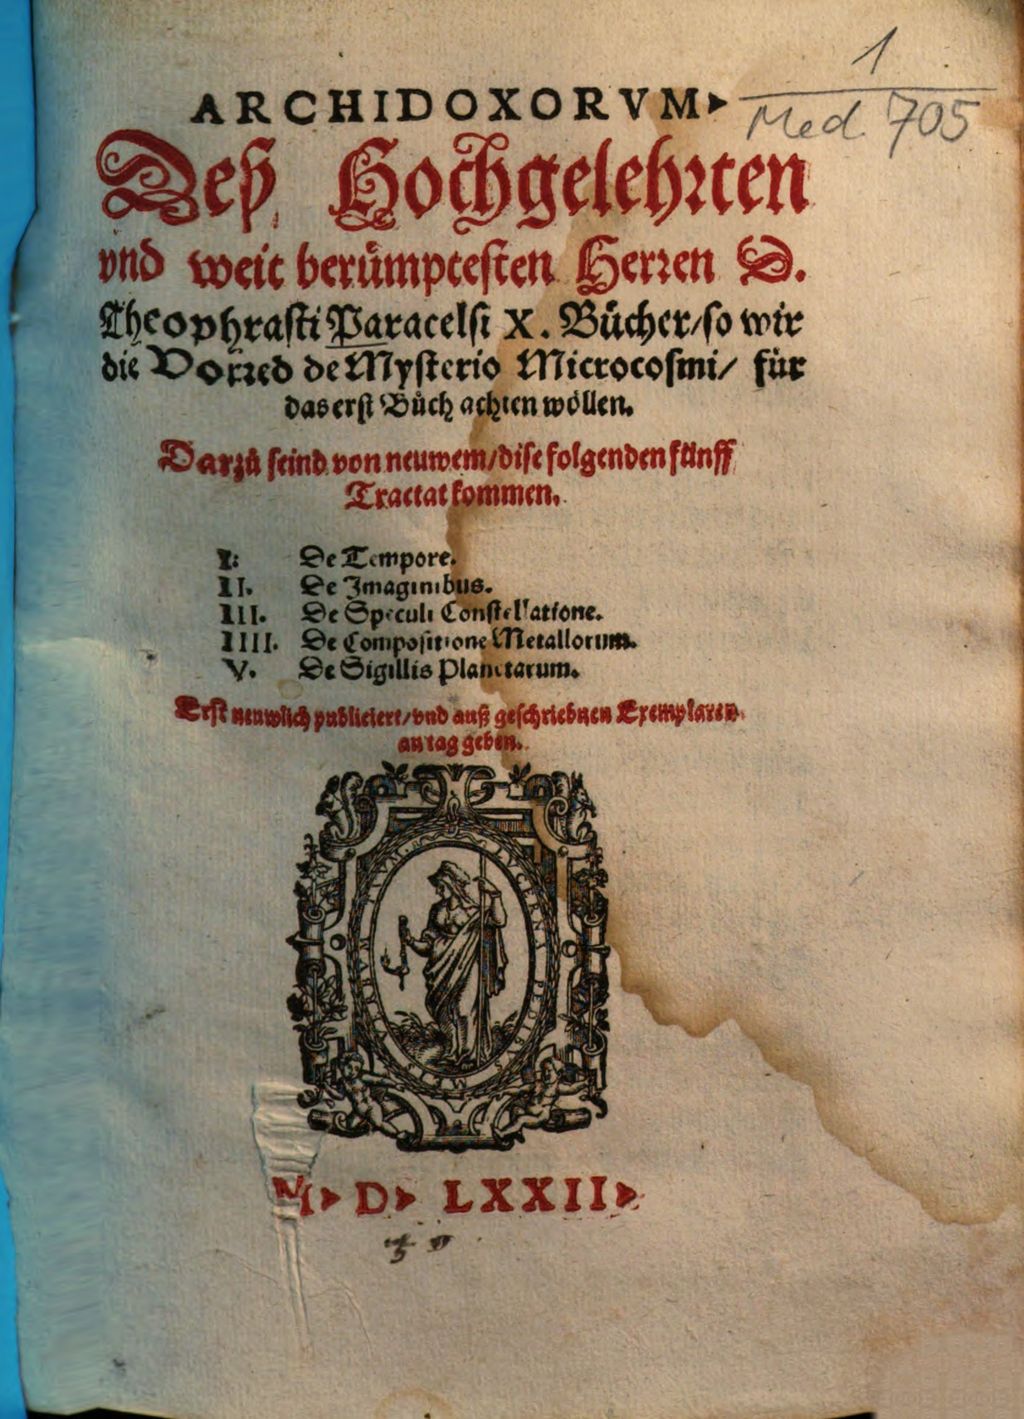 1
Med. 705
ARCHIDOXORVM
Deß Hochgelehrten
vnd weit berůmptesten Herren D.
Theophrasti Paracelsi X. Bůcher/ so wir
die Vorred de Mysterio Microcosmi/ für
das erst Bůch achten wöllen.
Darzů seind von neuwem/ dise folgenden fünff
Tractat kommen.
I. De Tempore.
II. De Imaginibus.
III. De Speculi Constellatione.
IIII. De Compositione Metallorum.
V. De Sigillis Planetarum.
Erst neuwlich publiciert/ vnd auß geschriebnen Exemplaren
an tag geben.
LVCERNA PEDIBVS MEIS VERBVM TVVM
M D LXXII